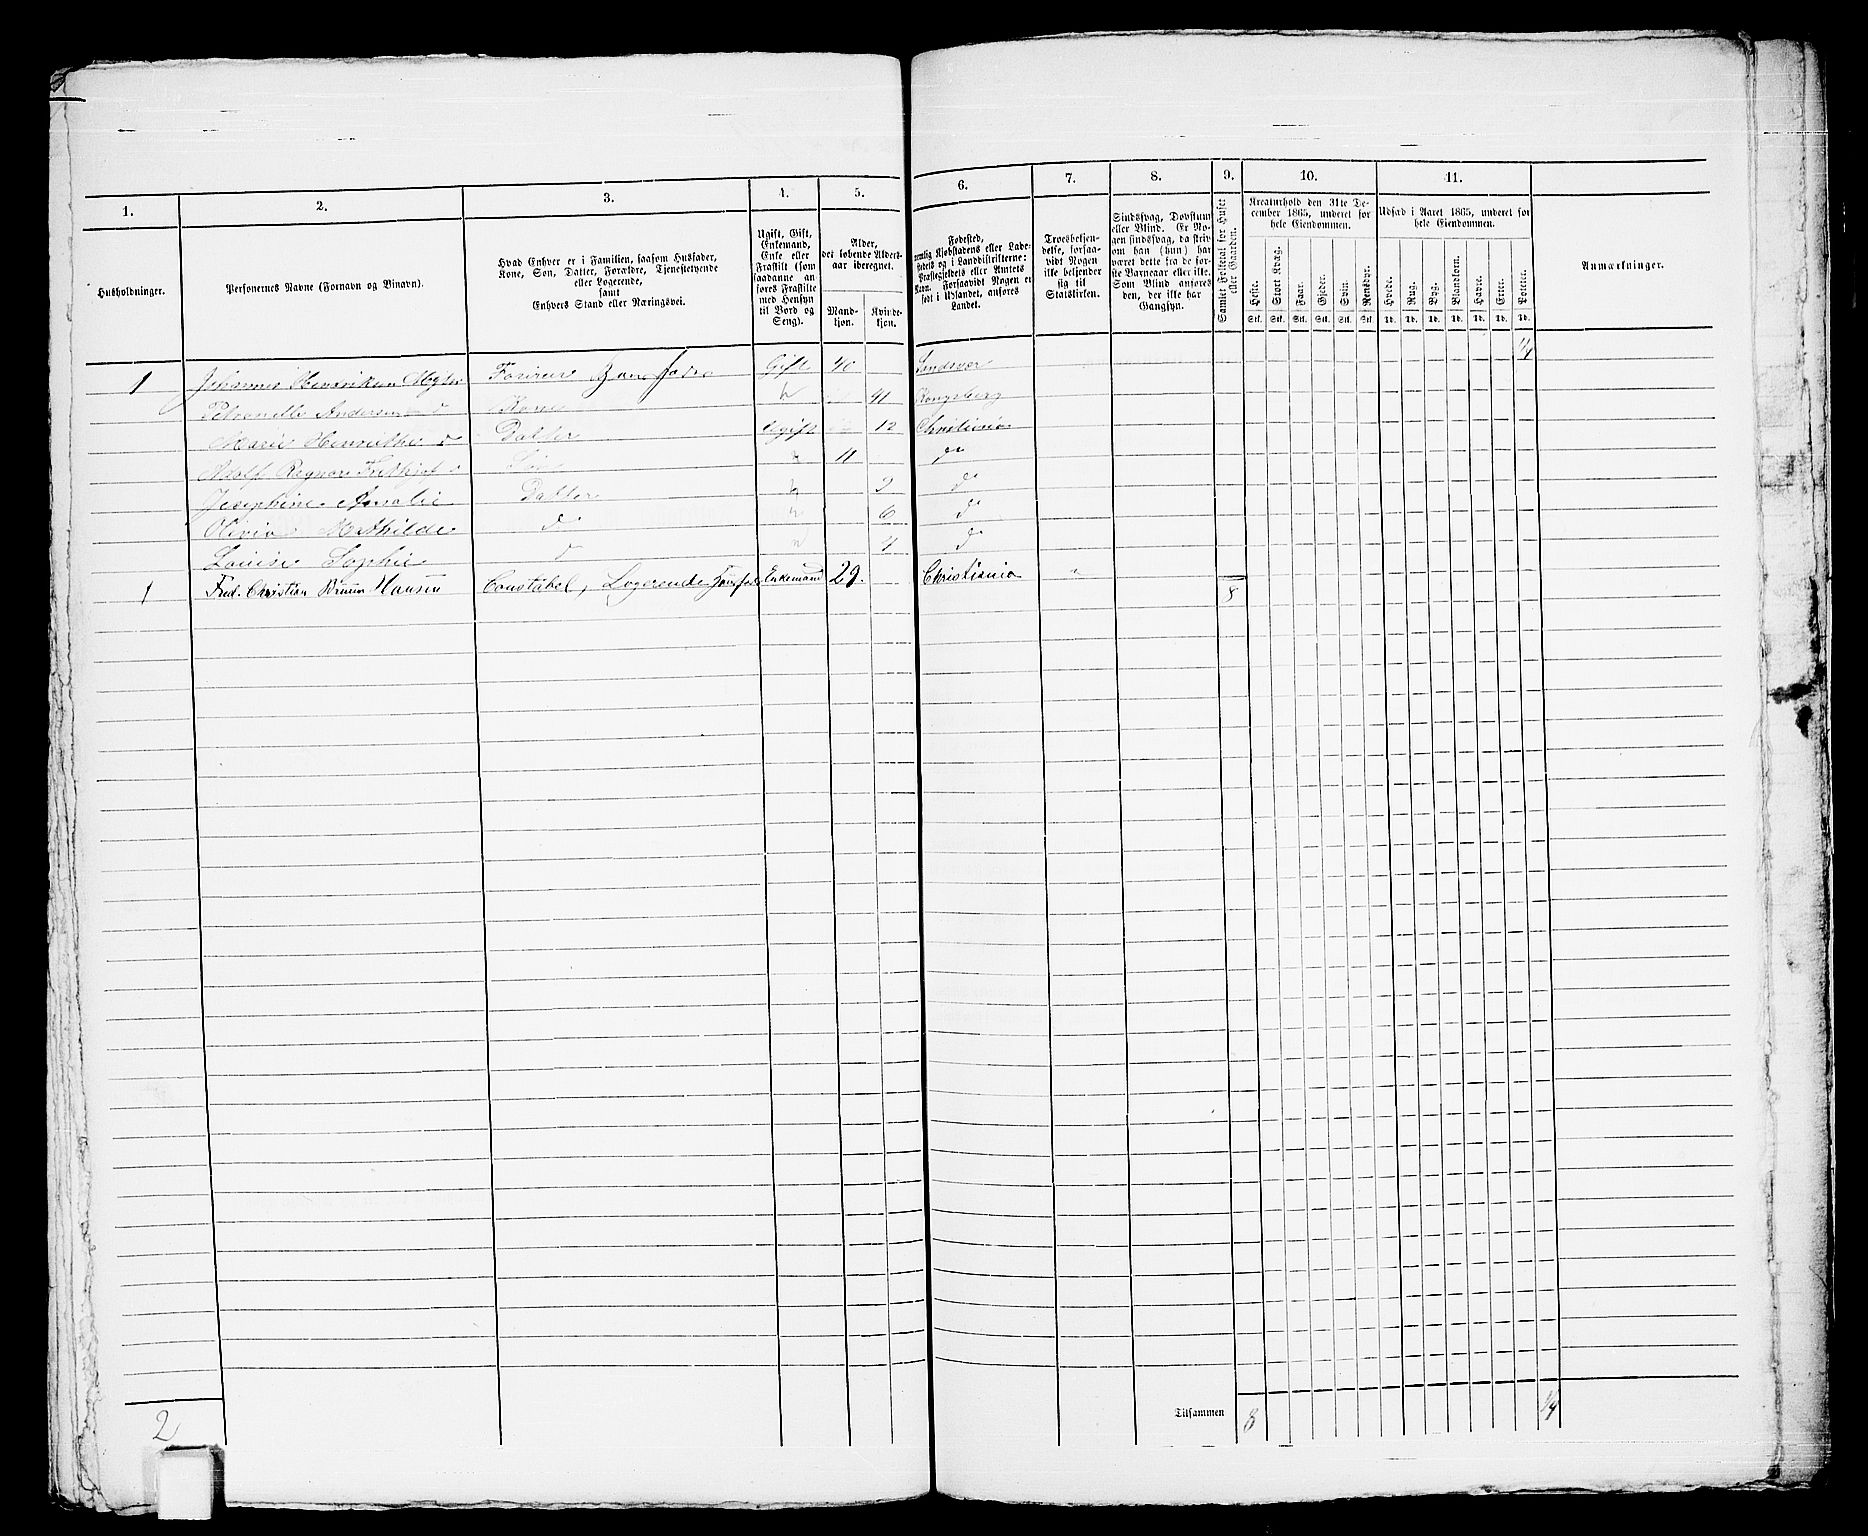 1. 2. 3. 4. 5. 6. 7. 8. 9. 10. 11.
Husholdninger.
Personernes Navne (Fornavn og Tilnavn).
Hvad Enhver er i Familien, saasom Husfader,
Kone, Søn, Datter, Forældre, Tjenestetyende
eller Logerende,
samt
Enhvers Stand eller Næringsvei.
Ugift, Gift,
Enkemand,
Enke eller
Fraskilt (som
saadanne an-
føres Fraskilte
med Hensyn
til Bord og
Seng).
Alder,
det løbende Alders-
aar iberegnet.
Mand-
kjøn.
Kvinde-
kjøn.
Fødested,
nemlig Kjøbstadens eller Lade-
stedets og i Landdistrikterne:
Præstegjeldets eller Amtets
Navn. Forsaavidt Nogen er
født i Udlandet, anføres
Landet.
Troesbekjen-
delse, forsaa-
vidt Nogen
ikke bekjender
sig til
Statskirken.
Sindssvag, Døvstum
eller Blind. Er No-
gen sindssvag, da skriv
om han (hun) har
været dette fra de før-
ste Barneaar eller ikke.
Som Blind anføres
den, der ikke har
Gangsyn.
Samlet Folketal for Huset
eller Gaarden.
Kreaturhold den 31te De-
cember 1865, underet for
hele Eiendommen.
Heste. Stort Kvæg. Faar. Gjeder. Svin. Rensdyr.
Stk. Stk. Stk. Stk. Stk. Stk.
Udsæd i Aaret 1865, underet for
hele Eiendommen.
Hvede. Rug. Byg. Blandkorn. Havre. Erter. Poteter.
Td. Td. Td. Td. Td. Td. Td.
Anmærkninger.
1 Johannes Henriksen Gift 40 Sandsvær 1/4
Petronelle Andersen do Kone 41 Kongsberg
Marie Henriethe do Datter Ugift 12 Christiania
Adolf Ragnar Frithjof do Søn 11 do
Josephine Amalie Datter 2 do
Olivia Mathilde do 6 do
Louise Sophie do 4 do
1 Fred. Christian Bruun Hansen Constabel, Logerende Enkemand 29. Christiania " 8
Tilsammen 8 1/4
2